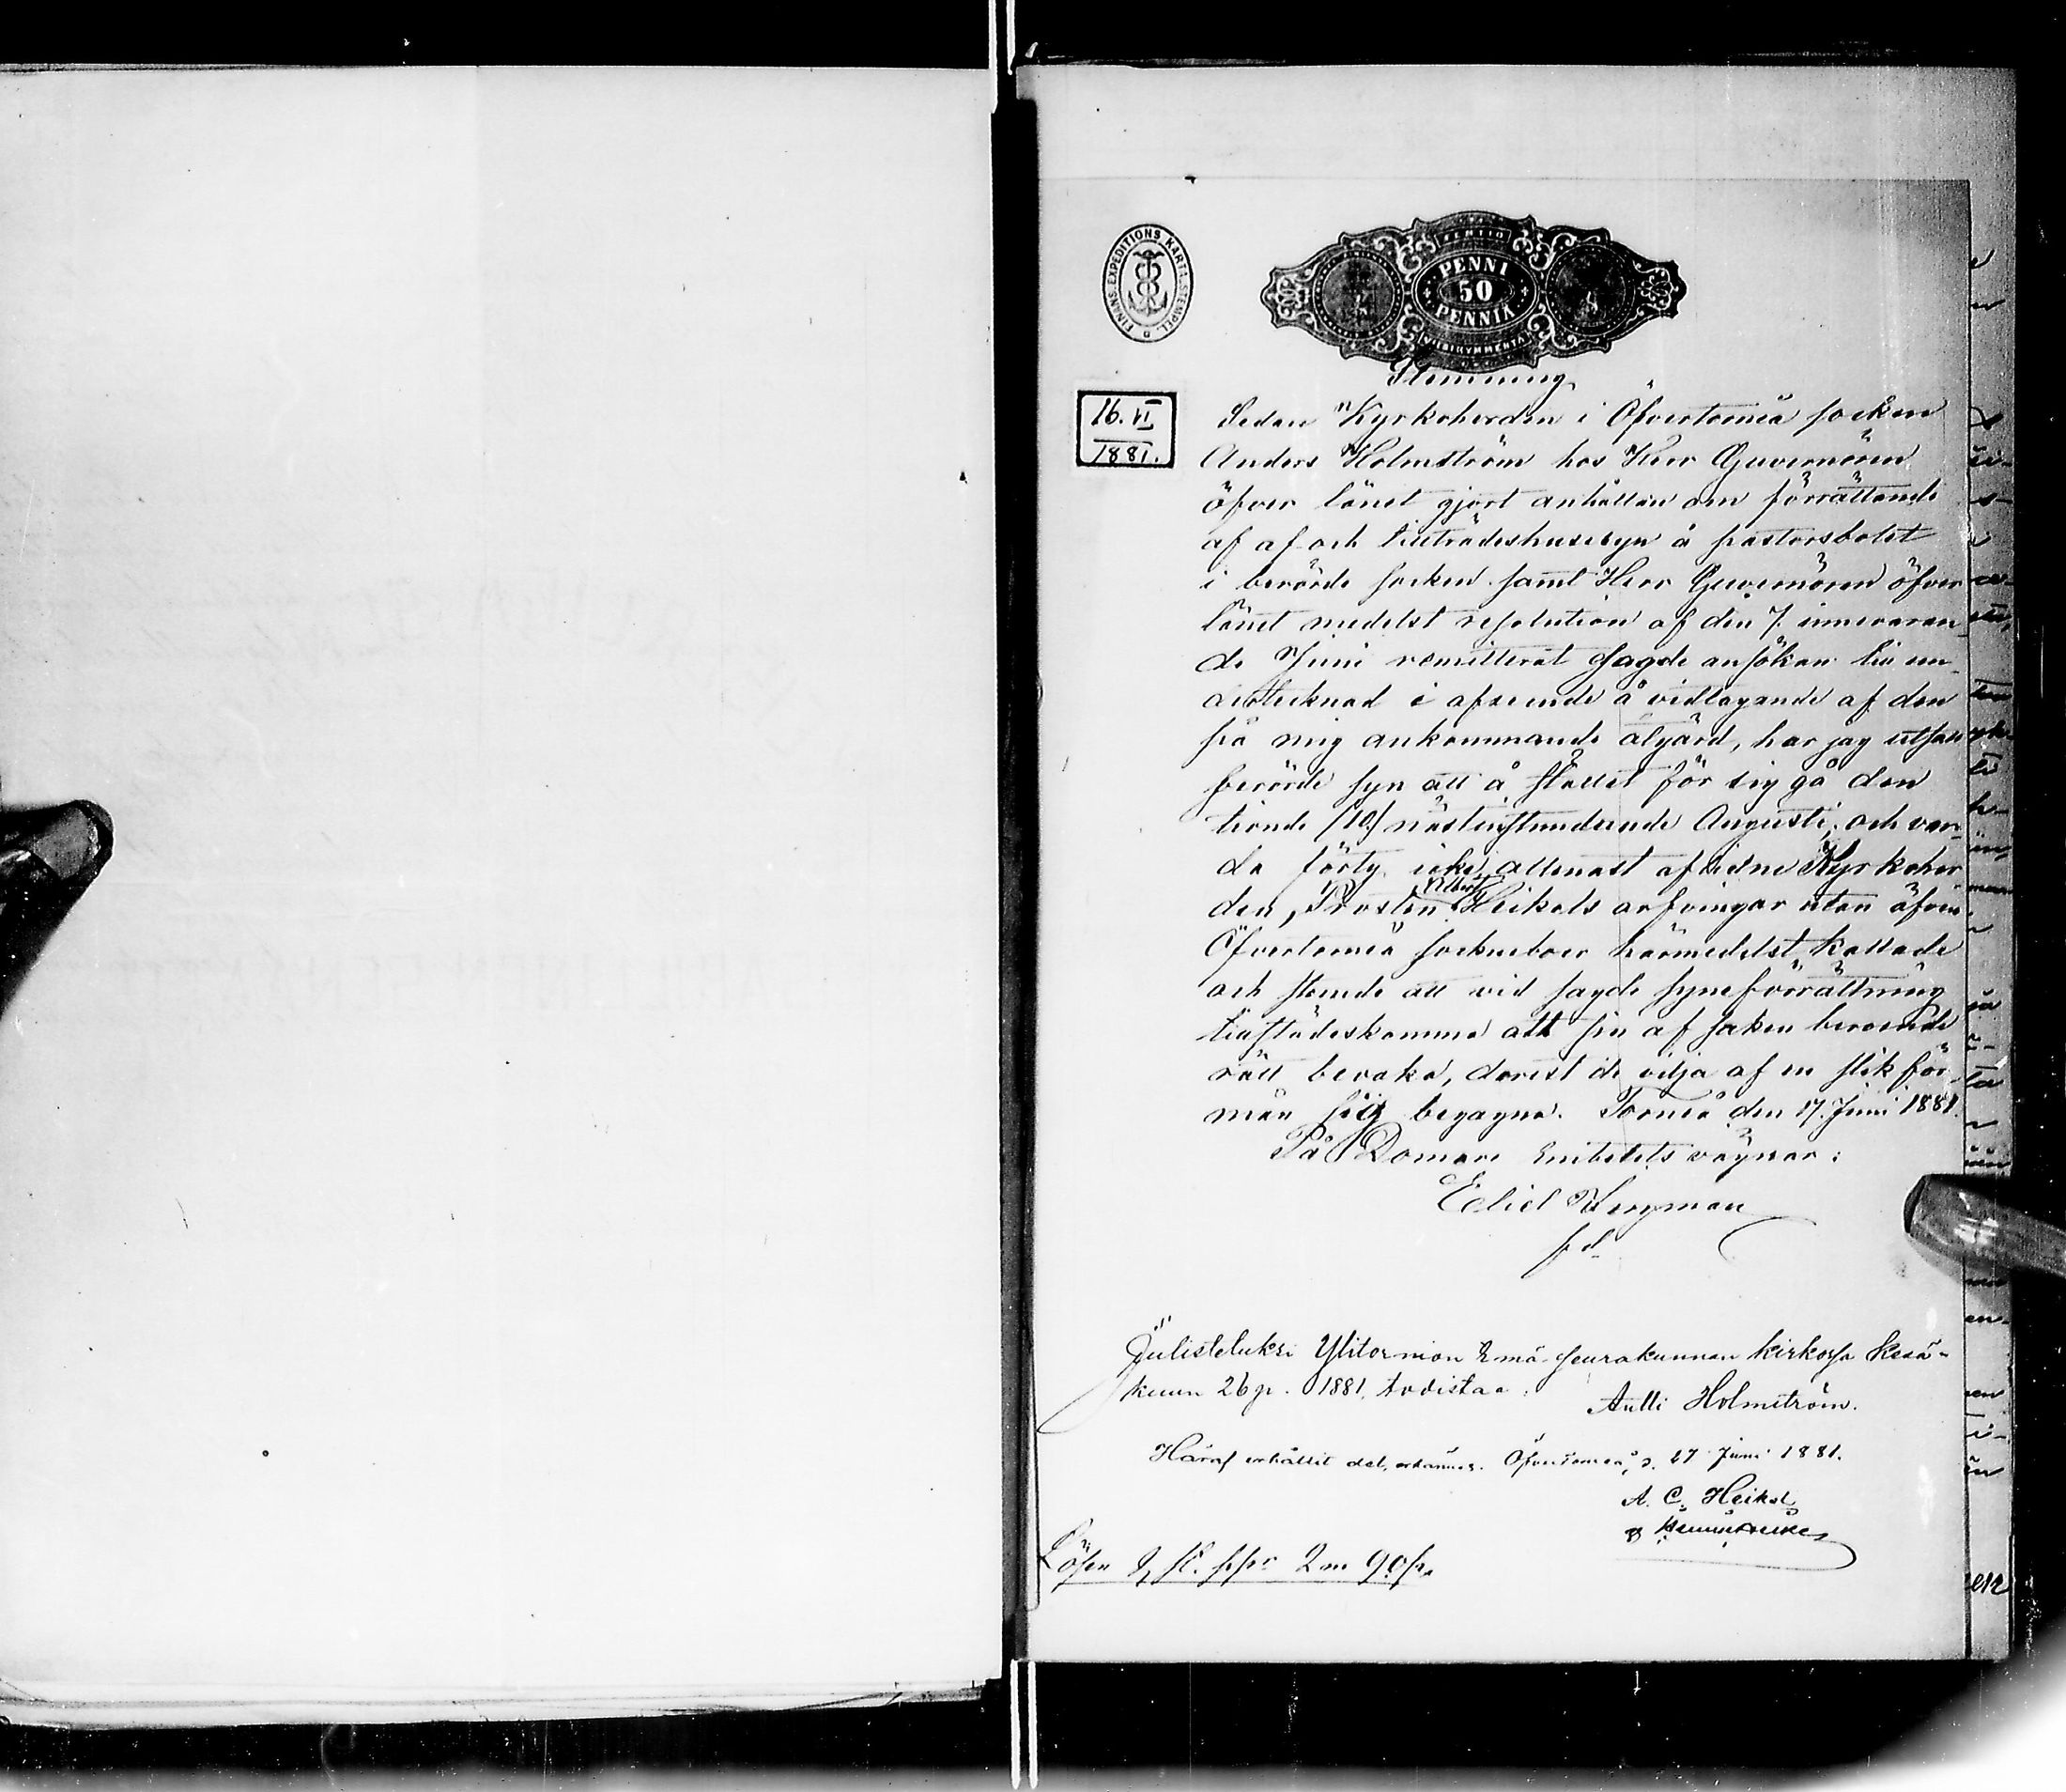 FINANS EXPEDITIONS KARTA STEMPEL
FEMTIO
PENNI
50
PENNIÄ
VIISIKYMMENTÄ
16. VI
1881.
Stemning
Sedan Kyrkoherden i Öfvertorneå socken
Anders Holmström hos Herr Guvernören
öfver länet gjort anhållan om förrättande
af af- och tillträdeshusesyn å pastorsbolet
i berörde socken samt Herr Guvernören öfver
länet medelst resolution af den 7. innevaran-
de Juni remitterat sagde ansökan till un-
dertecknad i afseende å vidtagande af den
på mig ankommande åtgärd, har jag utsatt
berörde syn att å stället för sig gå den
tionde (10.) nästinstundande Augusti, och var-
da förty icke allenast aflidne Kyrkoher
den, Prosten Albert Heikels arfvingar utan äfven
Öfvertorneå sockneboer härmedelst kallade
och stemde att vid sagde syneförrättning
tillstädeskomma att sin af saken beroende
rätt bevaka, derest de vilja af en slik för-
mån sig begagna. Torneå den 17. Juni 1881.
På Domare Embetets vägnar:
Eliel Wegman
Julistetuksi Ylitornion Emä-seurakunnan kirkossa Kesä-
kuun 26 p. 1881, todistaa:
Antti Holmström.
Häraf erhållit del, erkännes. Öfvertorneå, d. 27 Juni 1881.
A. C. Heikel
Lösen 2 m 90 p.